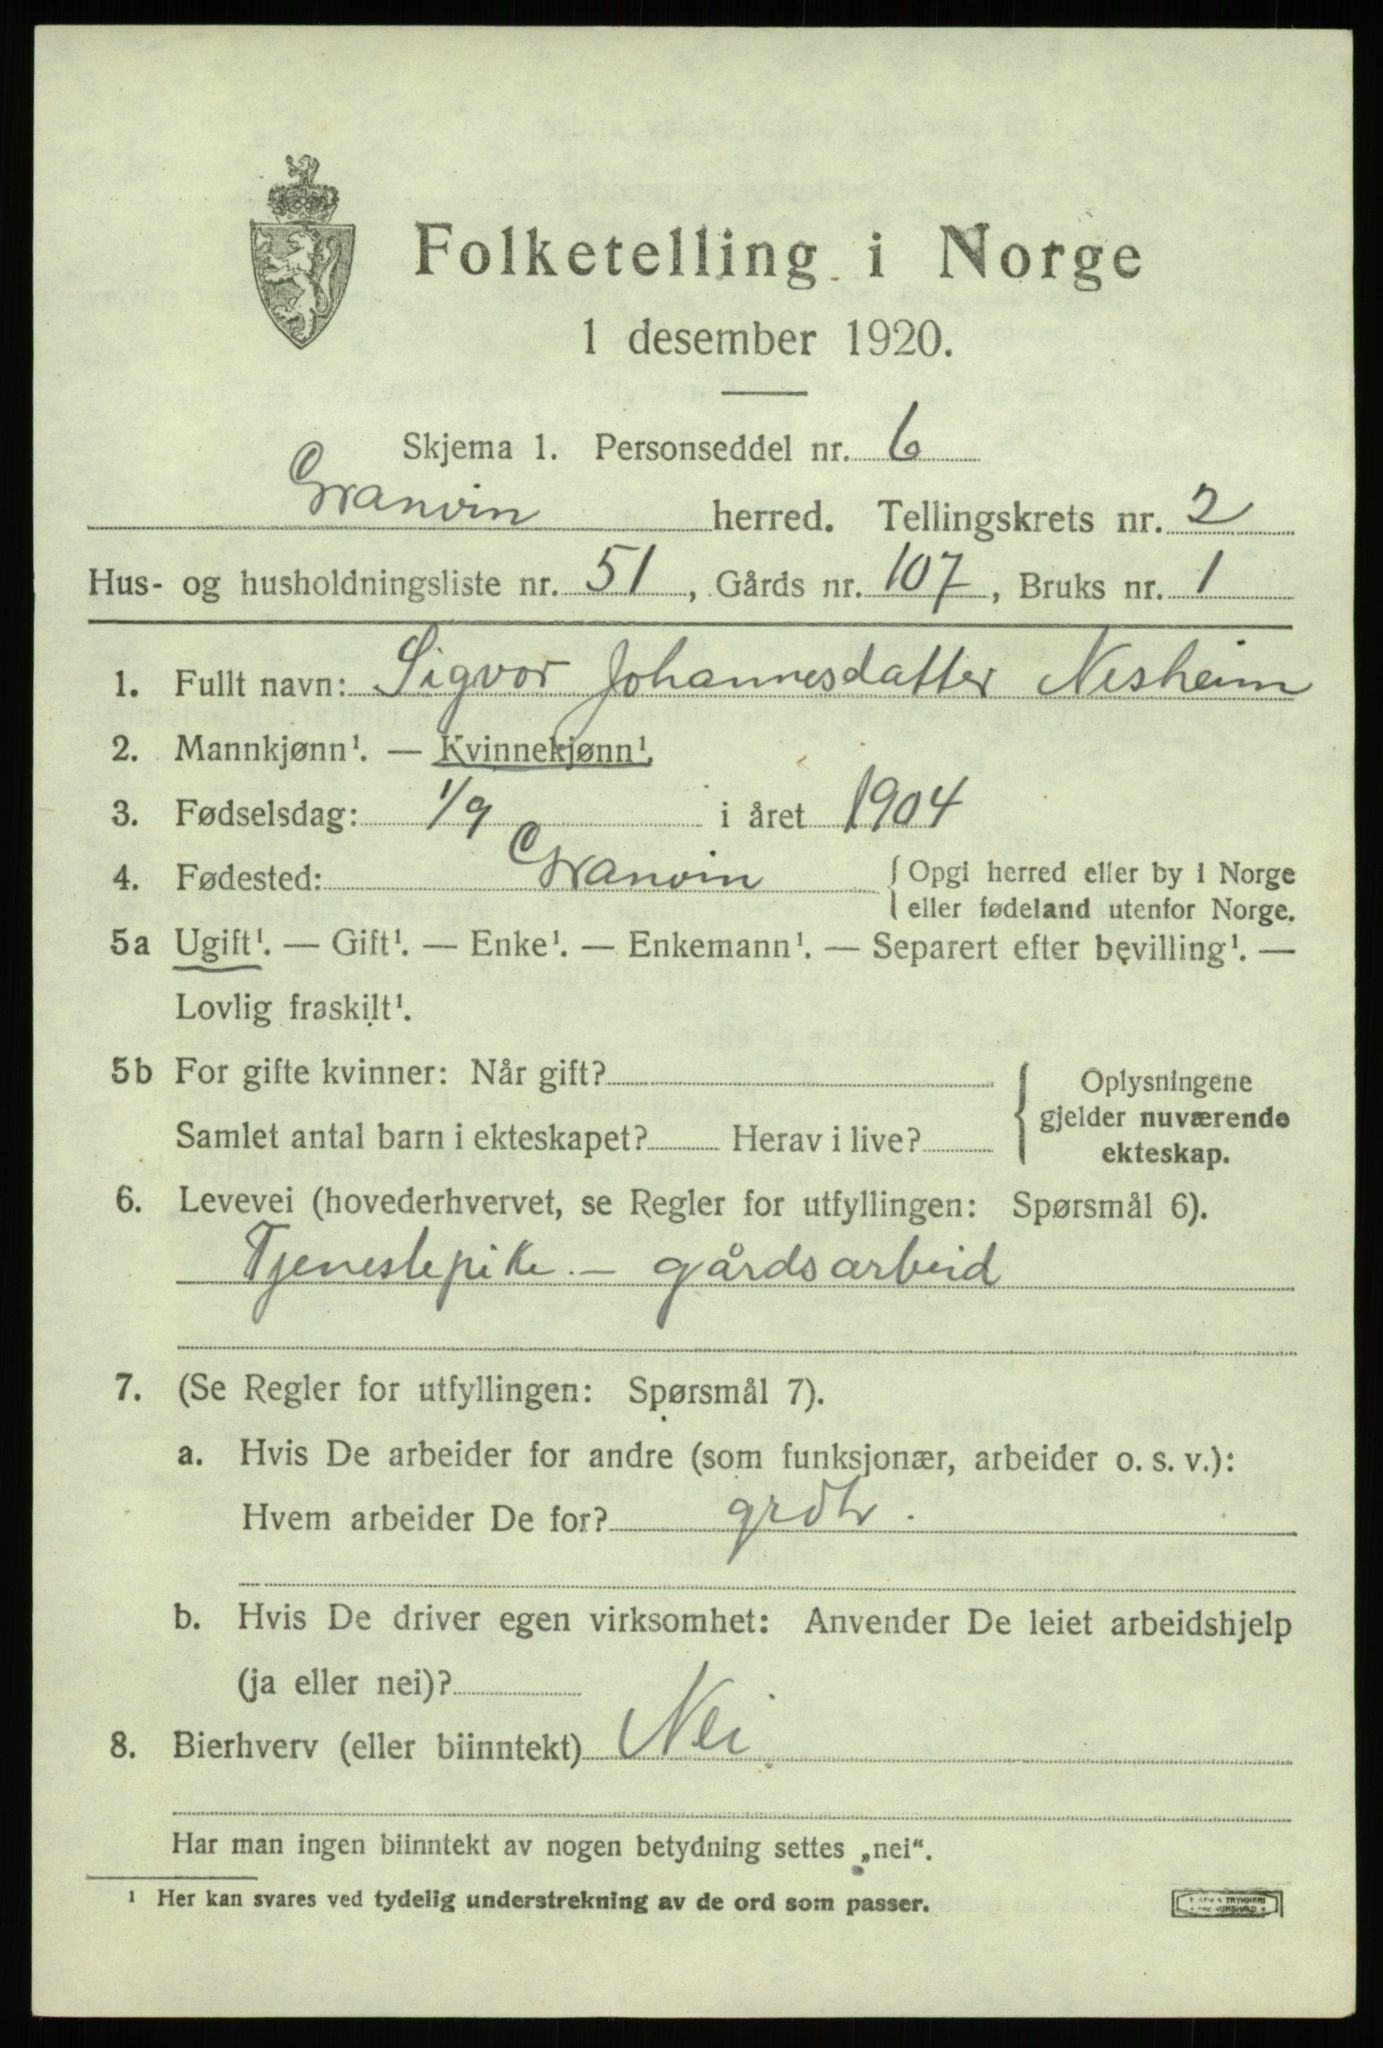 Folketelling i Norge
1 desember 1920.
Skjema 1. Personseddel nr. 6
Granvin herred. Tellingskrets nr. 2
Hus- og husholdningsliste nr. 51, Gårds nr. 107, Bruks nr. 1
1. Fullt navn: Sigvor Johannesdatter Nesheim
2. Mannkjønn¹. — Kvinnekjønn¹.
3. Fødselsdag: 1/9 i året 1904
4. Fødested: Granvin { Opgi herred eller by i Norge
eller fødeland utenfor Norge.
5a Ugift¹. — Gift¹. — Enke¹. — Enkemann¹. — Separert efter bevilling¹. —
Lovlig fraskilt¹.
5b For gifte kvinner: Når gift?
Samlet antal barn i ekteskapet? Herav i live?
{ Oplysningene
gjelder nuværende
ekteskap.
6. Levevei (hovederhvervet, se Regler for utfyllingen: Spørsmål 6).
Tjenestepike - gårdsarbeid
7. (Se Regler for utfyllingen: Spørsmål 7).
a. Hvis De arbeider for andre (som funksjonær, arbeider o. s. v.):
Hvem arbeider De for? grdbr.
b. Hvis De driver egen virksomhet: Anvender De leiet arbeidshjelp
(ja eller nei)?
8. Bierhverv (eller biinntekt) Nei
Har man ingen biinntekt av nogen betydning settes „nei“.
¹ Her kan svares ved tydelig understrekning av de ord som passer.